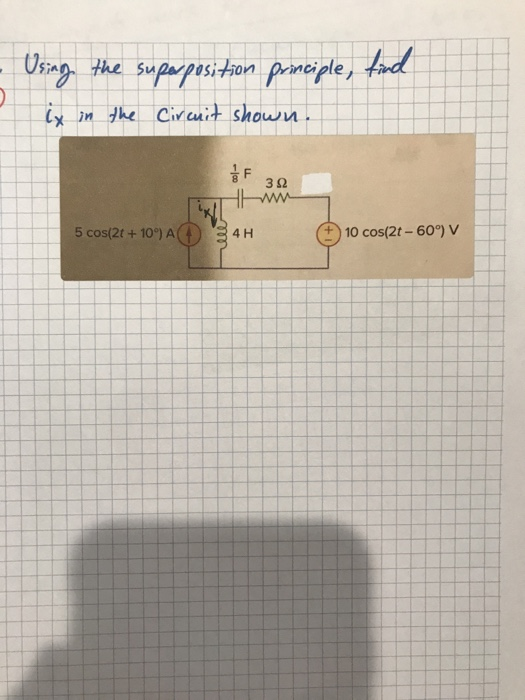 Using the superposition principle, find
ix in the circuit shown.
1/8 F
3 Ω
ix
5 cos(2t + 10°) A
4 H
+
−
10 cos(2t − 60°) V